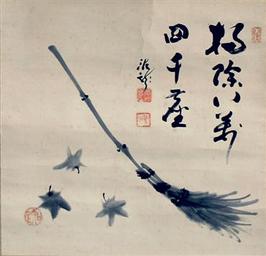 掃除八萬
四千塵